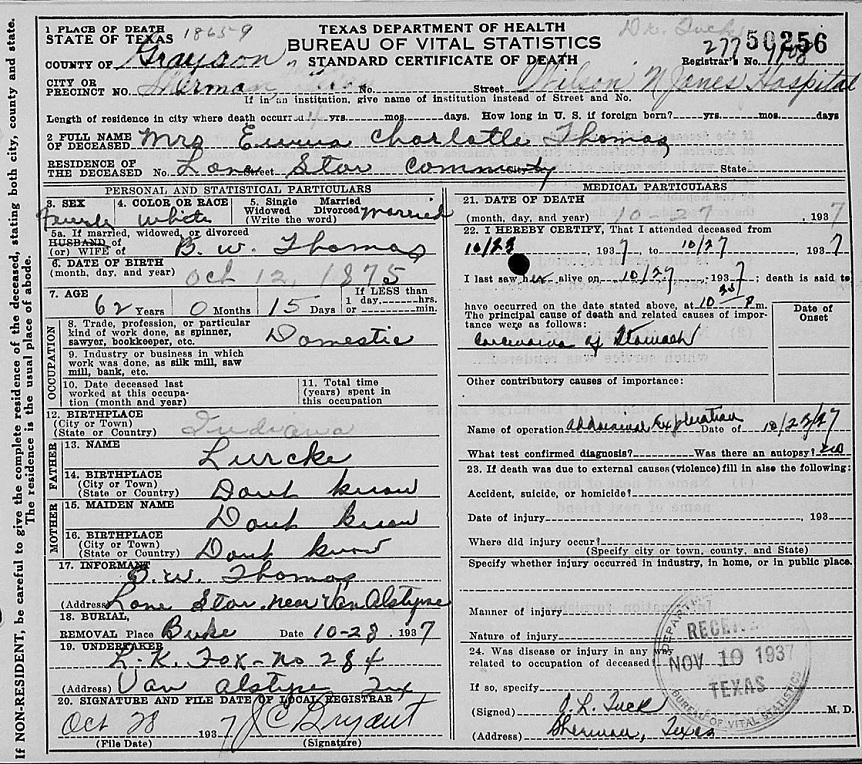 1 PLACE OF DEATH 1865-9
STATE OF TEXAS
COUNTY OF Grayson
CITY OR PRECINCT NO. Sherman No. Street Wilson N Jones Hospital
TEXAS DEPARTMENT OF HEALTH
BUREAU OF VITAL STATISTICS
STANDARD CERTIFICATE OF DEATH
Dr. Tuck
50256
277
Registrar's No.
If in an institution, give name of institution instead of Street and No.
Length of residence in city where death occurred yrs. mos. days. How long in U. S. if foreign born? yrs. mos. days
2 FULL NAME OF DECEASED Mrs Emma Charlotte Thomas
RESIDENCE OF THE DECEASED No. Lone Street Star Community State
PERSONAL AND STATISTICAL PARTICULARS
3. SEX Female
4. COLOR OR RACE White
5. Single Married Widowed Divorced (Write the word) Married
5a. If married, widowed, or divorced
HUSBAND of (or) WIFE of B. W. Thomas
6. DATE OF BIRTH (month, day, and year) Oct 12, 1875
7. AGE 62 Years 0 Months 15 Days If LESS than 1 day, hrs. or min.
OCCUPATION
8. Trade, profession, or particular kind of work done, as spinner, sawyer, bookkeeper, etc. Domestic
9. Industry or business in which work was done, as silk mill, saw mill, bank, etc.
10. Date deceased last worked at this occupation (month and year)
11. Total time (years) spent in this occupation
12. BIRTHPLACE (City or Town) (State or Country) Indiana
FATHER
13. NAME Lurcke
14. BIRTHPLACE (City or Town) (State or Country) Dont know
MOTHER
15. MAIDEN NAME Dont know
16. BIRTHPLACE (City or Town) (State or Country) Dont know
17. INFORMANT B. W. Thomas
(Address) Lone Star, near Van Alstyne
18. BURIAL, REMOVAL Place Date 10-28, 1937
19. UNDERTAKER L. K. Fox - No 284
(Address) Van Alstyne Tex
20. SIGNATURE AND FILE DATE OF LOCAL REGISTRAR
Oct 28 1937 J C Bryant
(File Date) (Signature)
MEDICAL PARTICULARS
21. DATE OF DEATH
(month, day, and year) 10-27, 1937
22. I HEREBY CERTIFY, That I attended deceased from
10/23, 1937, to 10/27 1937
I last saw her alive on 10/27, 1937; death is said to
have occurred on the date stated above, at 10 P.m.
The principal cause of death and related causes of importance were as follows:
Date of Onset
Carcinoma of Stomach
Other contributory causes of importance:
Name of operation abdominal Exploration Date of
What test confirmed diagnosis? Was there an autopsy? no
23. If death was due to external causes (violence) fill in also the following:
Accident, suicide, or homicide?
Date of injury 193
Where did injury occur?
(Specify city or town, county, and State)
Specify whether injury occurred in industry, in home, or in public place.
Manner of injury
Nature of injury
24. Was disease or injury in any way related to occupation of deceased?
If so, specify
(Signed) J. L. Tuck M. D.
(Address) Sherman, Texas
NOV 10 1937
TEXAS
BUREAU OF VITAL STATISTICS
If NON-RESIDENT, be careful to give the complete residence of the deceased, stating both city, county and state.
The residence is the usual place of abode.